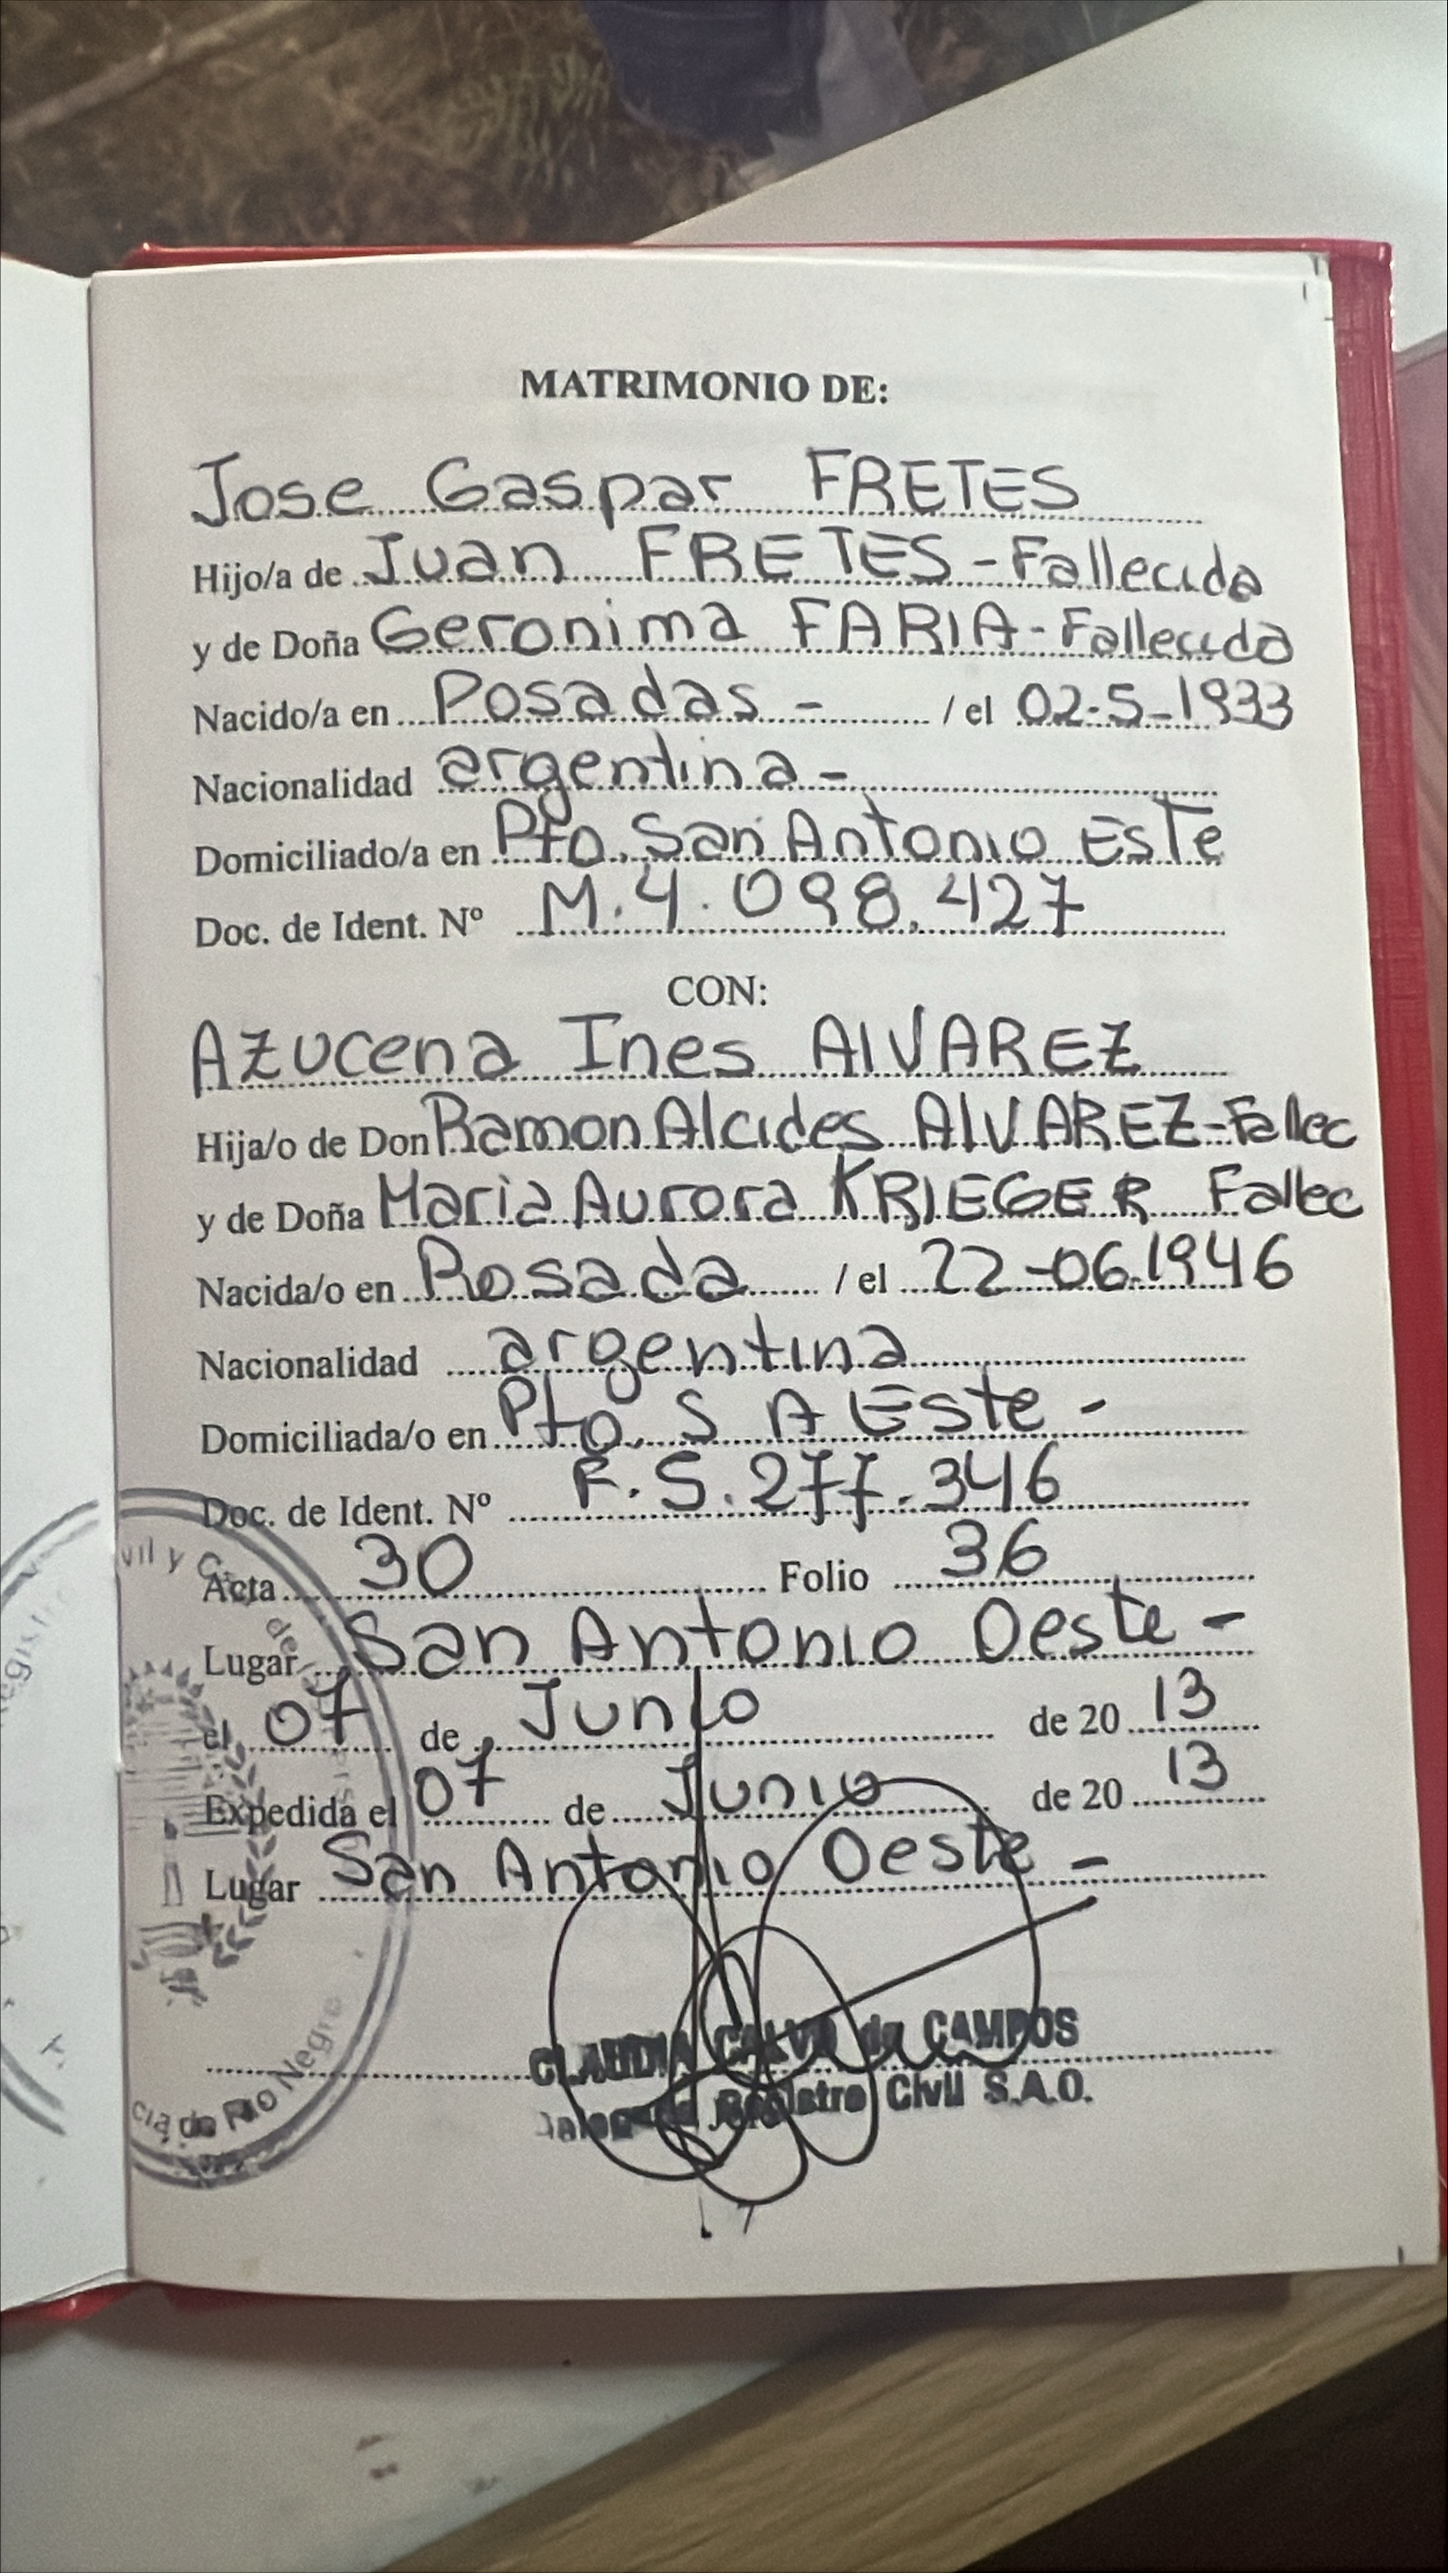 MATRIMONIO DE:
Jose Gaspar FRETES
Hijo/a de Juan FRETES - Fallecido
y de Doña Geronima FARIA - Fallecida
Nacido/a en Posadas - / el 02-5-1933
Nacionalidad argentina -
Domiciliado/a en Pto. San Antonio Este
Doc. de Ident. Nº M. 4. 098. 427
CON:
AZUCena Ines AlVAREZ
Hija/o de Don Ramon Alcides AlVAREZ - Fallec
y de Doña Maria Aurora KRIEGER Fallec
Nacida/o en Posada / el 22-06-1946
Nacionalidad argentina
Domiciliada/o en Pto. S A Este -
Doc. de Ident. Nº F. 5. 277. 346
Acta 30 Folio 36
Lugar San Antonio Oeste -
el 07 de Junio de 20 13
Expedida el 07 de Junio de 20 13
Lugar San Antonio Oeste -
CLAUDIA CALVO de CAMPOS
Registro Civil S.A.O.
de Rio Negro